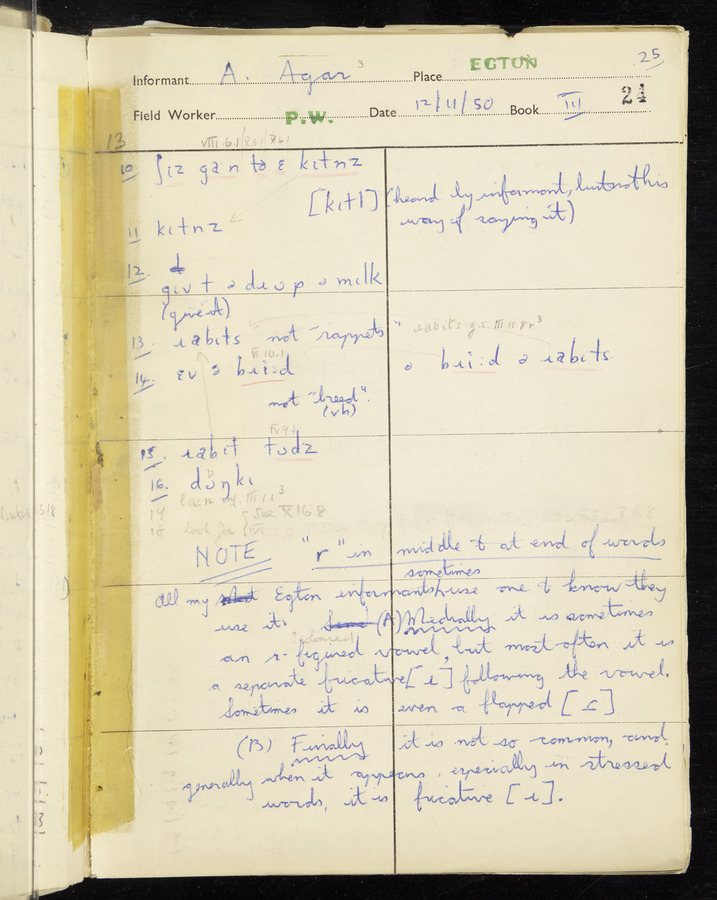 25
Informant A. Agar 3 Place EGTON
Field Worker P.W. Date 12/11/50 Book III 24
13
10 ʃɪz gan tə ɛ kɪtnz
[kɪtl] (heard by informant, but not his
way of saying it)
11 kɪtnz
12.
gɪv t ə dɹɒp ə mɪlk
(give it)
13. ɹabɪts not "rappets"
VI.10.1
14. ɛv ə bɹiːd ə bɹiːd ə ɹabɪts
not "breed".
(vb)
15. ɹabɪt tʊdz
16. dʊŋkɪ
17 III.1.1 3
18 look for see X 16.8
NOTE "r" in middle & at end of words
sometimes
All my Egton informants use one & know they
use it. (A) Medially it is sometimes
an r-figured vowel, but most often it is
a separate fricative [ɹ] following the vowel.
Sometimes it is even a flapped [ɾ]
(B) Finally it is not so common, and
generally when it appears, especially in stressed
words, it is fricative [ɹ].